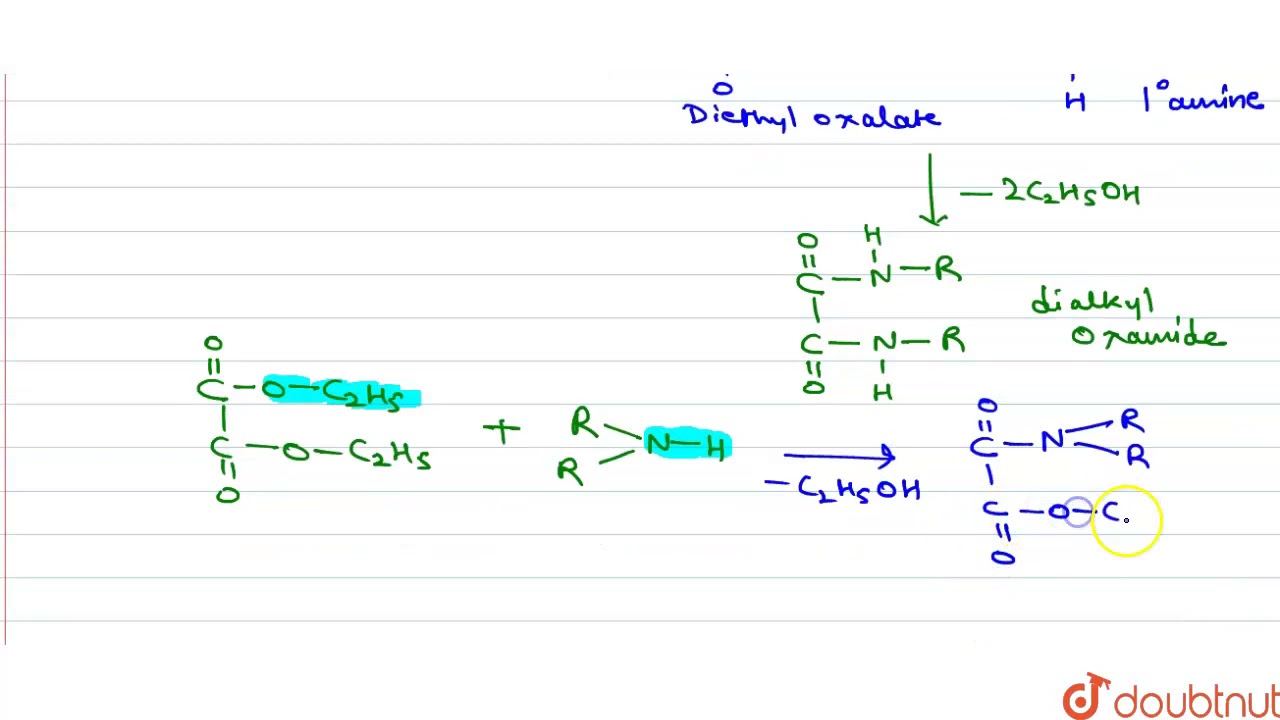 O
Diethyl oxalate
H 1° amine
— 2C2H5OH
O H
C — N — R
C — N — R
O H
dialkyl
oxamide
O
C — O — C2H5
C — O — C2H5
O
+
R
R
N — H
— C2H5OH
O
C — N
R
R
C — O — C
O
doubtnut